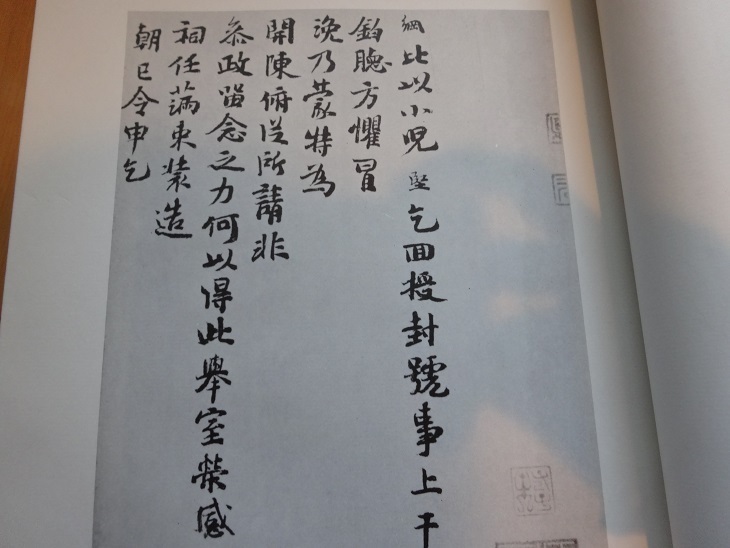 綱比以小兒堅乞回授封號事上干
鈞聽方懼冒
浼乃蒙特為
開陳俯從所請非
叅政留念之力何以得此舉室榮感
祠任滿束裝造
朝已令申乞